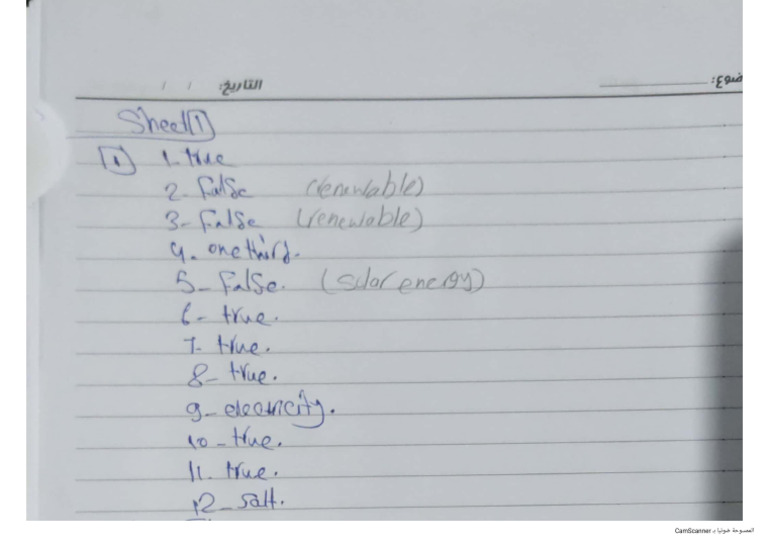 التاريخ: / / ضوع:
Sheet 1
1 1. true
2. False (renewable)
3. False (renewable)
4. one third.
5. False. (solar energy)
6. true.
7. true.
8. true.
9. electricity.
10. true.
11. true.
12. salt.
الممسوحة ضوئيا بـ CamScanner